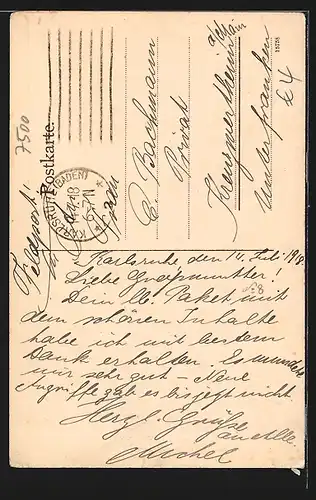 Postkarte.
7500
Feldpost!
KARLSRUHE (BADEN)
6-7 N
Frau
E. Bachmann
Privat
Kreuzwertheim a/Main
Unterfranken
£4
15738
Karlsruhe den 14. Juli 1918
Liebe Großmutter!
Dein lb. Paket mit
dem schönen Inhalte
habe ich mit bestem
Dank erhalten. Es mundete
mir sehr gut – Neue
Angriffe gab es bis jetzt nicht.
Herzl. Grüße
an Alle.
Michel